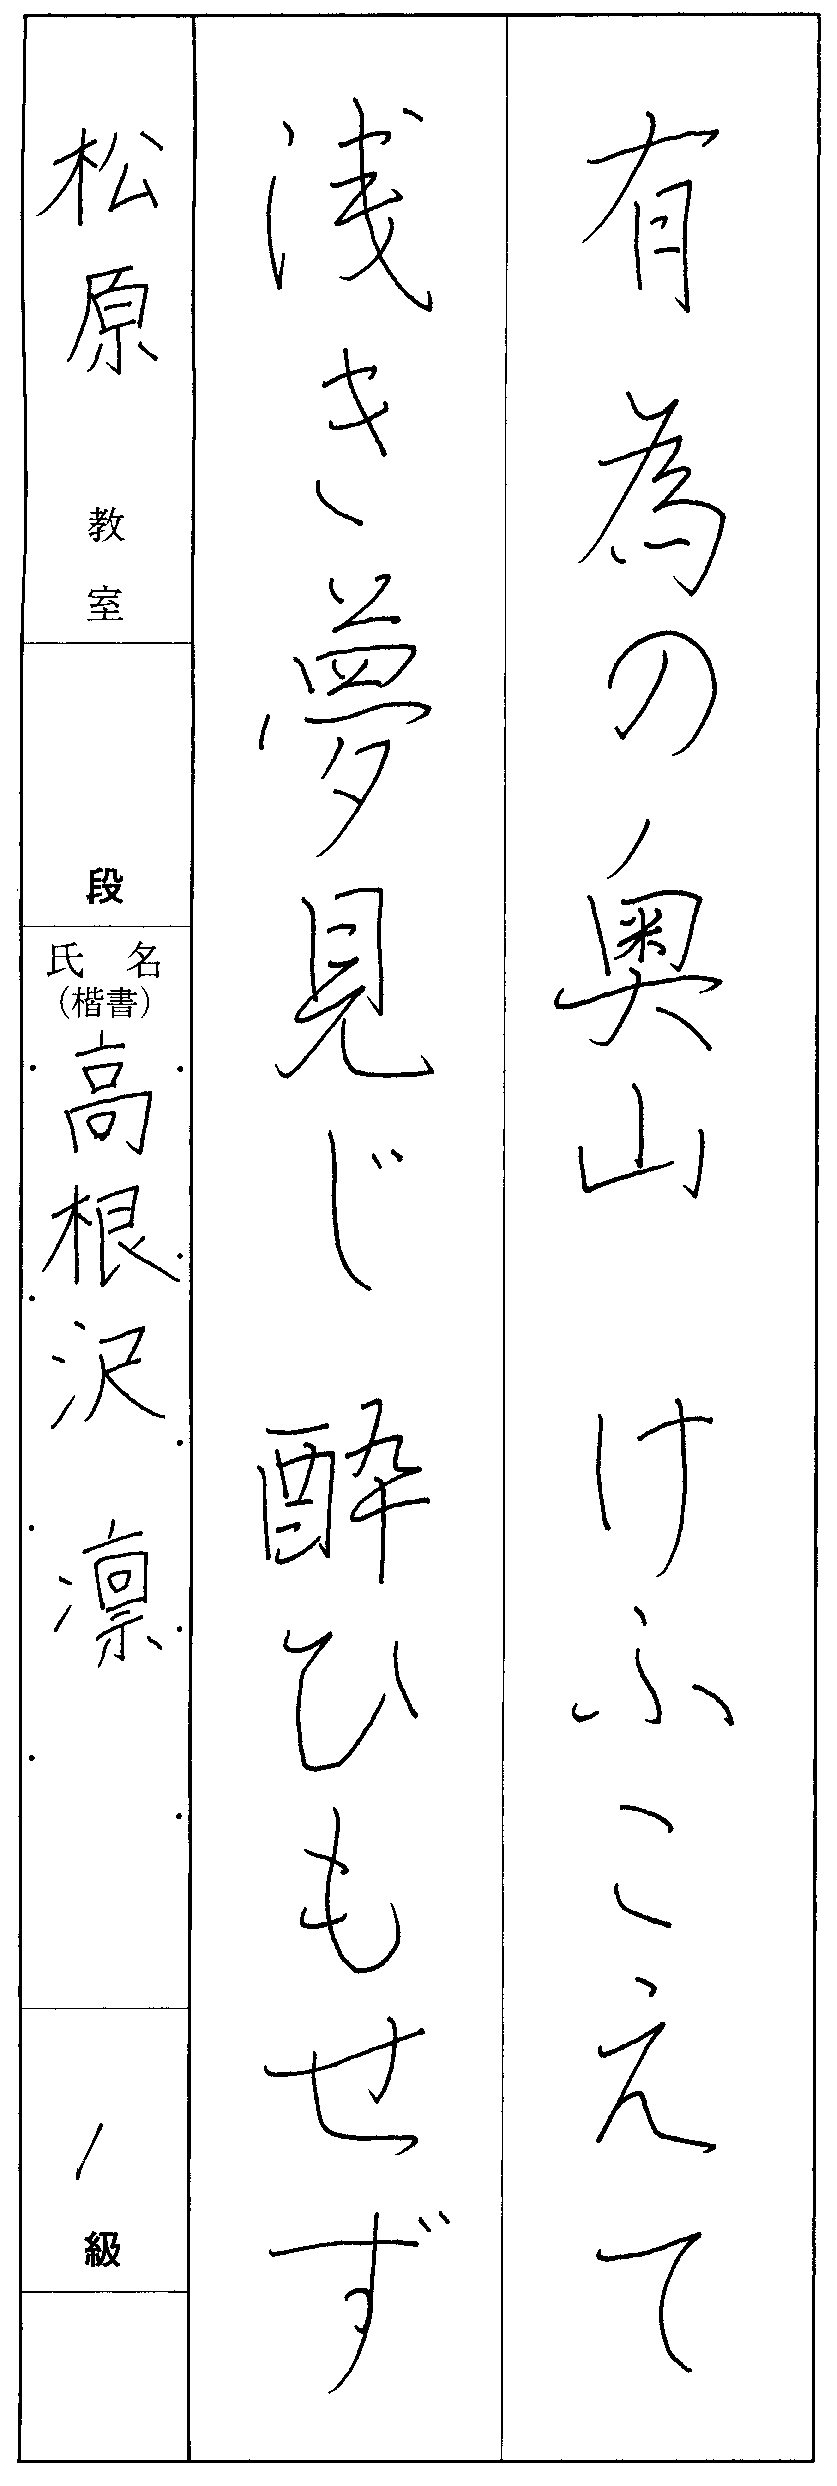 有為の奥山　けふこえて
浅き夢見じ　酔ひもせず
松原教室
段
氏名
(楷書)
高根沢　凛
1級